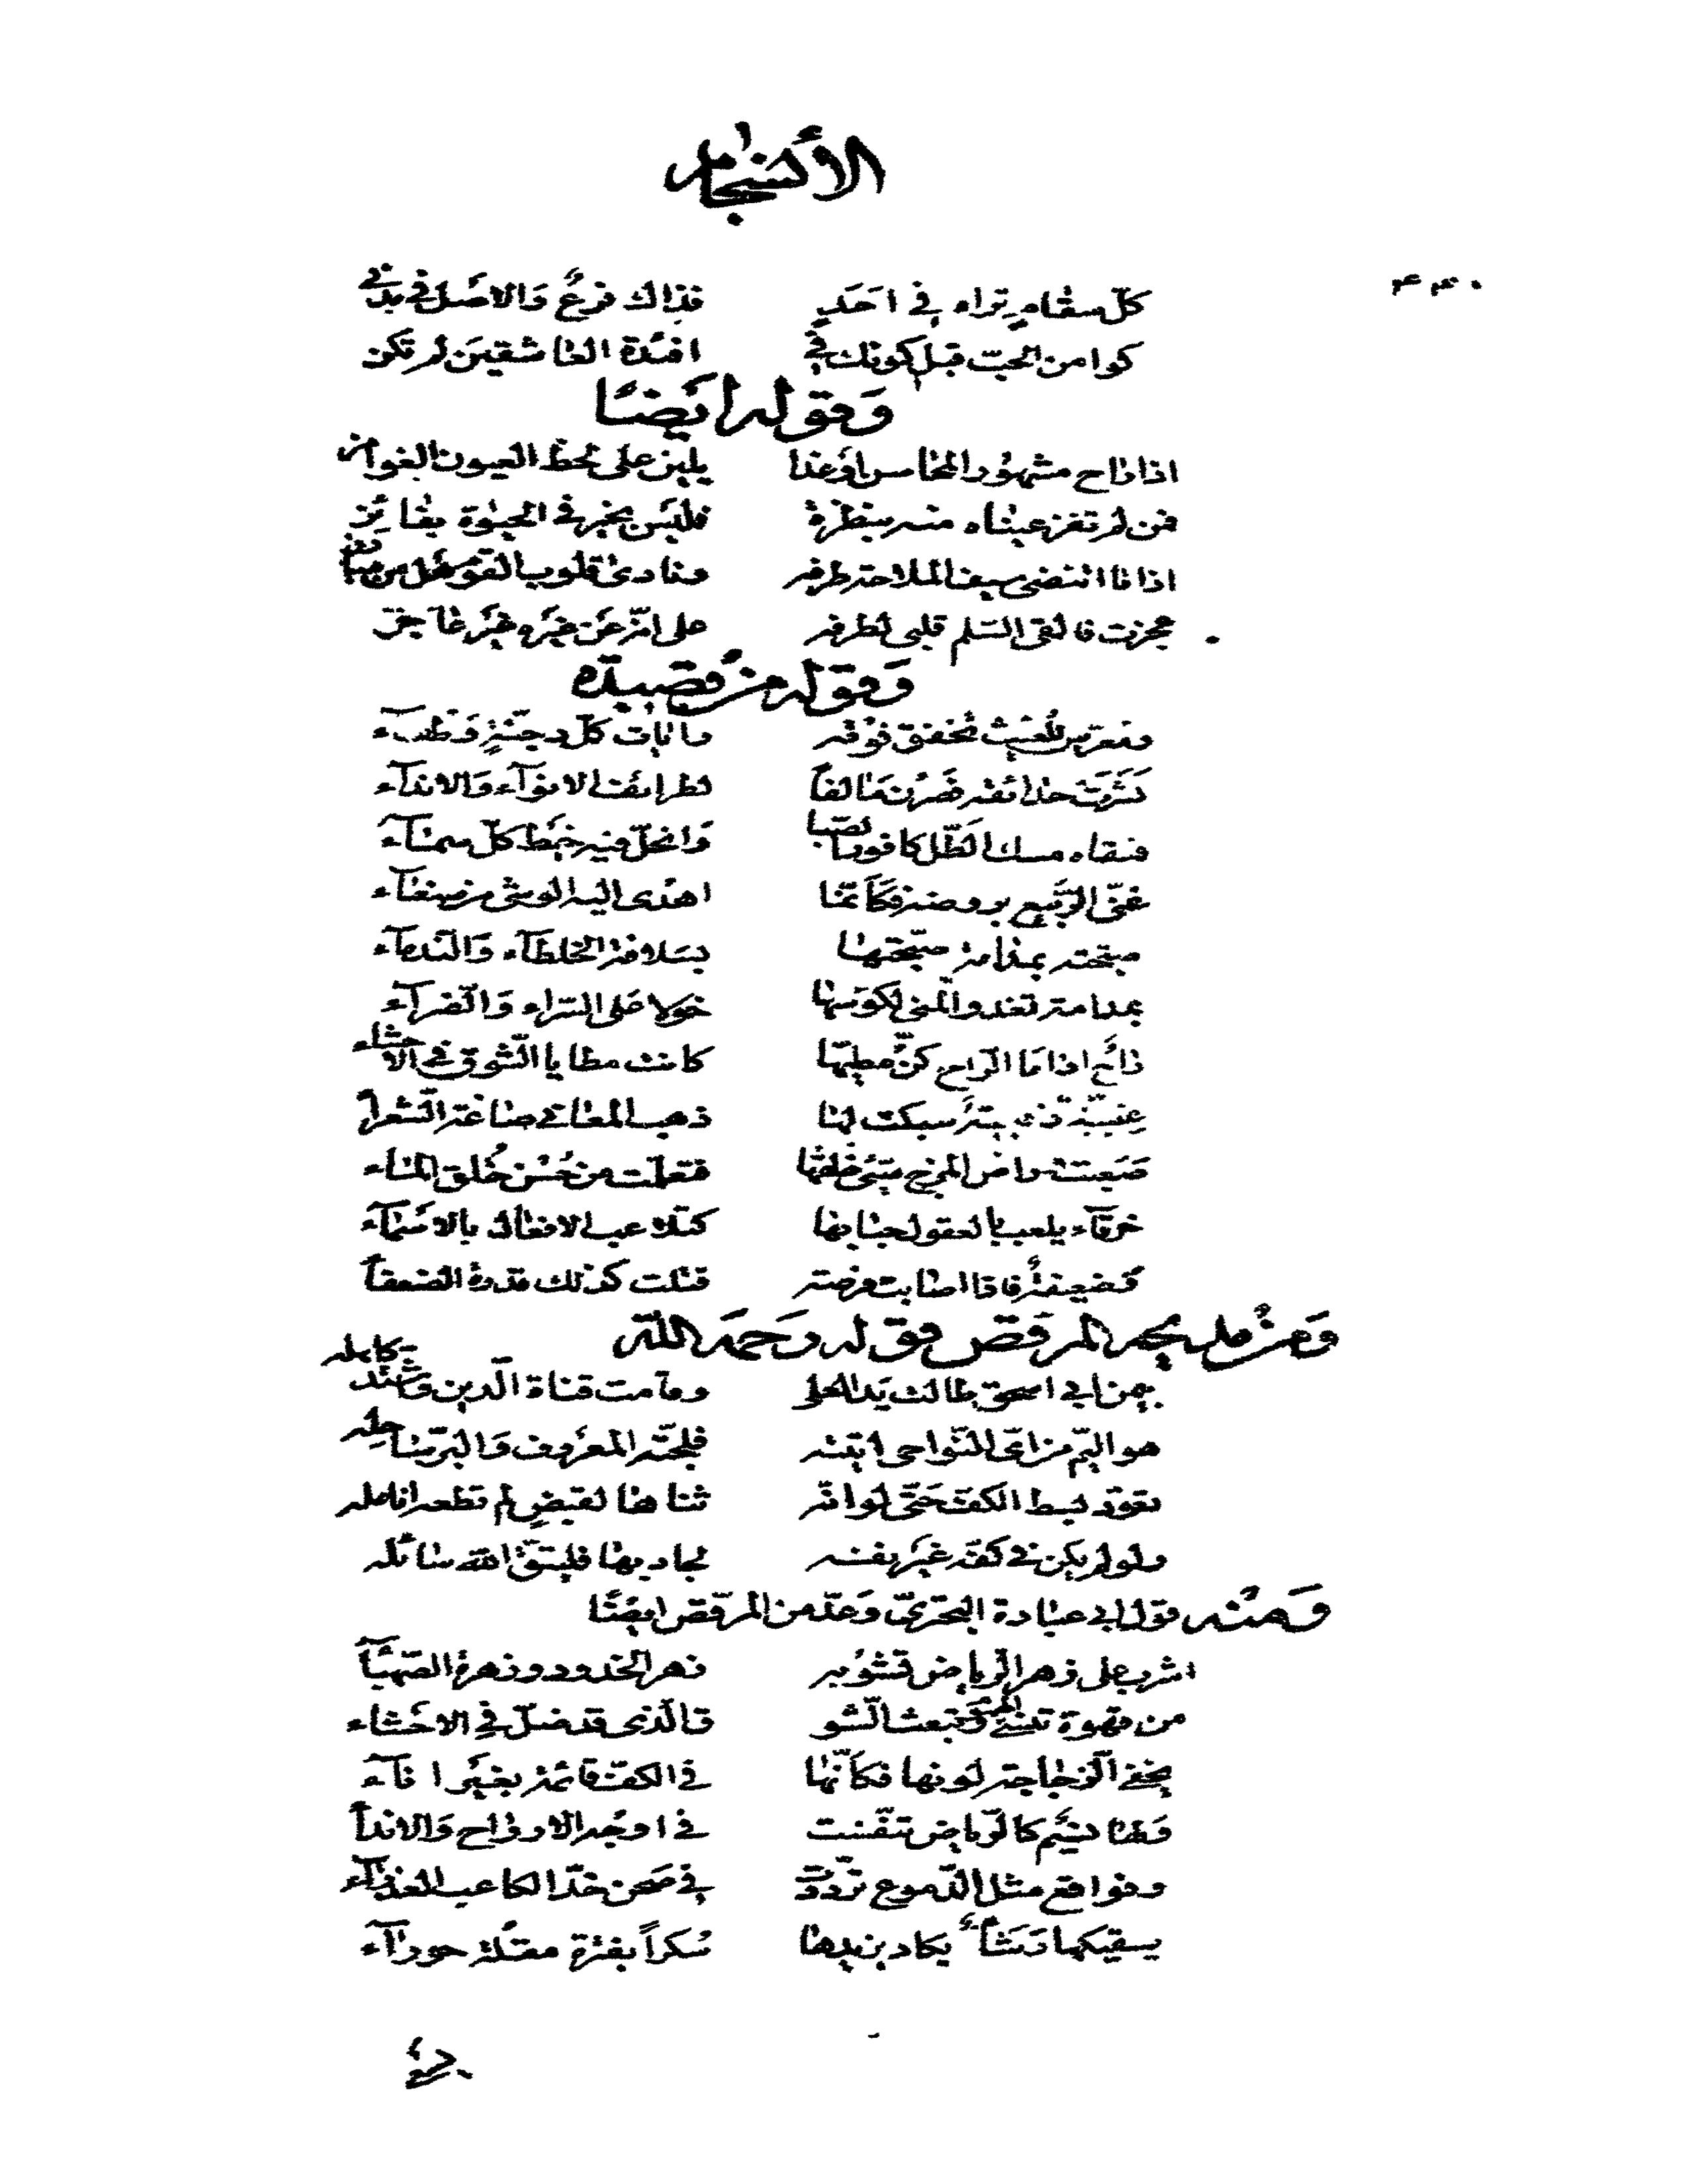 الأنسجام
٤٤٠
كلّ سقام تراه في احَدٍ فذاك فرعٌ وَالاصَل في بدني
كوامن الحبّ قبل كونك في افئدة العاشقين لم تكن
وَقوله ايَضًا
اذا لاح مشهُور المحاسن اوْغدا يلين على لحظ العيون الغوامز
فمن لم تفز عيناه منه بنظرة فليَس بخير في الحيوة بفائز
اذا ما انتضى سيف الملاحة طرفه ونادى قلوب القوم هَل من مبارز
عجزت فالقى السّلم قلبى لطرفه على انّه عَن غيَره غيَر عاجز
وَقوله من قصيدة
ومعرّس للغيث تخفق فوْقه رايات كلّ دجنّةٍ وَطفاء
نَشَرَت حدائقه فصَرن مَآلفاً لطرائف الانوآء وَالاندآء
فسقاه مسك الطّلّ كافور الصّبا وَانحلّ فيه خيط كلّ سمآء
غنّى الرّبَيع بروضه فكَأنّما اهدى اليه الوشى من صنعآء
صبّحته بمدامة صبّحتها بسَلافة الخلطآء وَالندمآء
بمدامة تغدو المنى لكؤسها خوَلا عَلى السّراء وَالضّرآء
راح اذا مَا الرّاح كنّ مطيّها كانت مطايا الشّوق في الاحشاء
عنبيّة ذهبيّة سبكت لها ذهب المعاني صاغة الشعرآ
صَعبت وراض المزج سَيّئ خلقها فتعلّمت من حُسْن خُلق الماء
خرقآء يلعب بالعقول حبابها كتلاعب الافعال بالاسَمآء
وَضعيفة فاذا اصابت فرصة قتلت كذلك قدرة الضعفآ
وَمن مليحه المرقص قوله رَحمَه اللّه
بيمن ابي اسحق طالت يَد العلى وقامت قناة الّدين وَاشتدّ كاهله
هو اليّم من اىّ النّواحى اتيته فلجّته المعرَوف وَالبرّ ساحله
تعوّد بسط الكفّ حَتّى لوانّه ثناها لقبضٍ لم تطعه انامله
ولو لم يكن في كفّه غيَر نفسه لجاد بها فليتّق اللّه سائله
وَمنه قول ابي عبادة البحتريّ وَعدّ من المرقّص ايضًا
اشرب على زهر الرّياض يشوُبه زهر الخدود وزهرة الصّهبآ
من قهوة تنسي الهموم وَتبعث الشّو ق الذى قد ضلّ في الاحَشاء
يخفي الزّجاجة لونها فكأنّها في الكفّ قائمة بغيَر انآء
وَلها نسيَم كالرّياض تنفّست في اوجُه الارواح وَالاندآ
وفواقع مثل الدّموع تردّدت في صَحن خدّ الكاعب العذرآء
يسقيكها رَشَأ يكاد يزيدها سُكراً بفترة مقلة حورآء